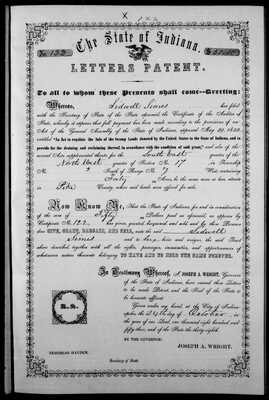 x
No. 122
The State of Indiana.
LETTERS PATENT.
To all to whom these Presents shall come—Greeting:
Whereas, Sidwell Simes has filed
with the Secretary of State of the State aforesaid the Certificate of the Auditor of
State, whereby it appears that full payment has been made according to the provisions of an
Act of the General Assembly of the State of Indiana, approved May 29, 1852,
entitled "An Act to regulate the Sale of the Swamp Lands donated by the United States to the State of Indiana, and to
provide for the draining and reclaiming thereof, in accordance with the condition of said grant," and also of the
several Acts supplemental thereto for the South East quarter of the
North West quarter of Section No. 17 in Township
No. South of Range No. 7 West containing
Forty Acres, be the same more or less situate
in Pike County, where said lands were offered for sale.
Now Know Ye, That the State of Indiana for and in consideration
of the sum of Fifty Dollars paid as aforesaid as appears by
Certificate No. 122, has given, granted, bargained and sold, and by these Presents
does GIVE, GRANT, BARGAIN, AND SELL, unto the said Sidwell
Simes and to his heirs and assigns, the said Tract
above described together with all the rights, privileges, immunities, and appurtenances of
whatsoever nature thereunto belonging TO HAVE AND TO HOLD THE SAME FOREVER.
In Testimony Whereof, I, JOSEPH A. WRIGHT, Governor
of the State of Indiana, have caused these Letters
to be made Patent, and the Seal of the State to
be hereunto affixed.
Given under my hand, at the City of Indian-
apolis the day of October in
the year of our Lord, one thousand eight hundred and
fifty three, and of the State the thirty eighth
L.S.
BY THE GOVERNOR:
JOSEPH A. WRIGHT.
NEHEMIAH HAYDEN,
Secretary of State